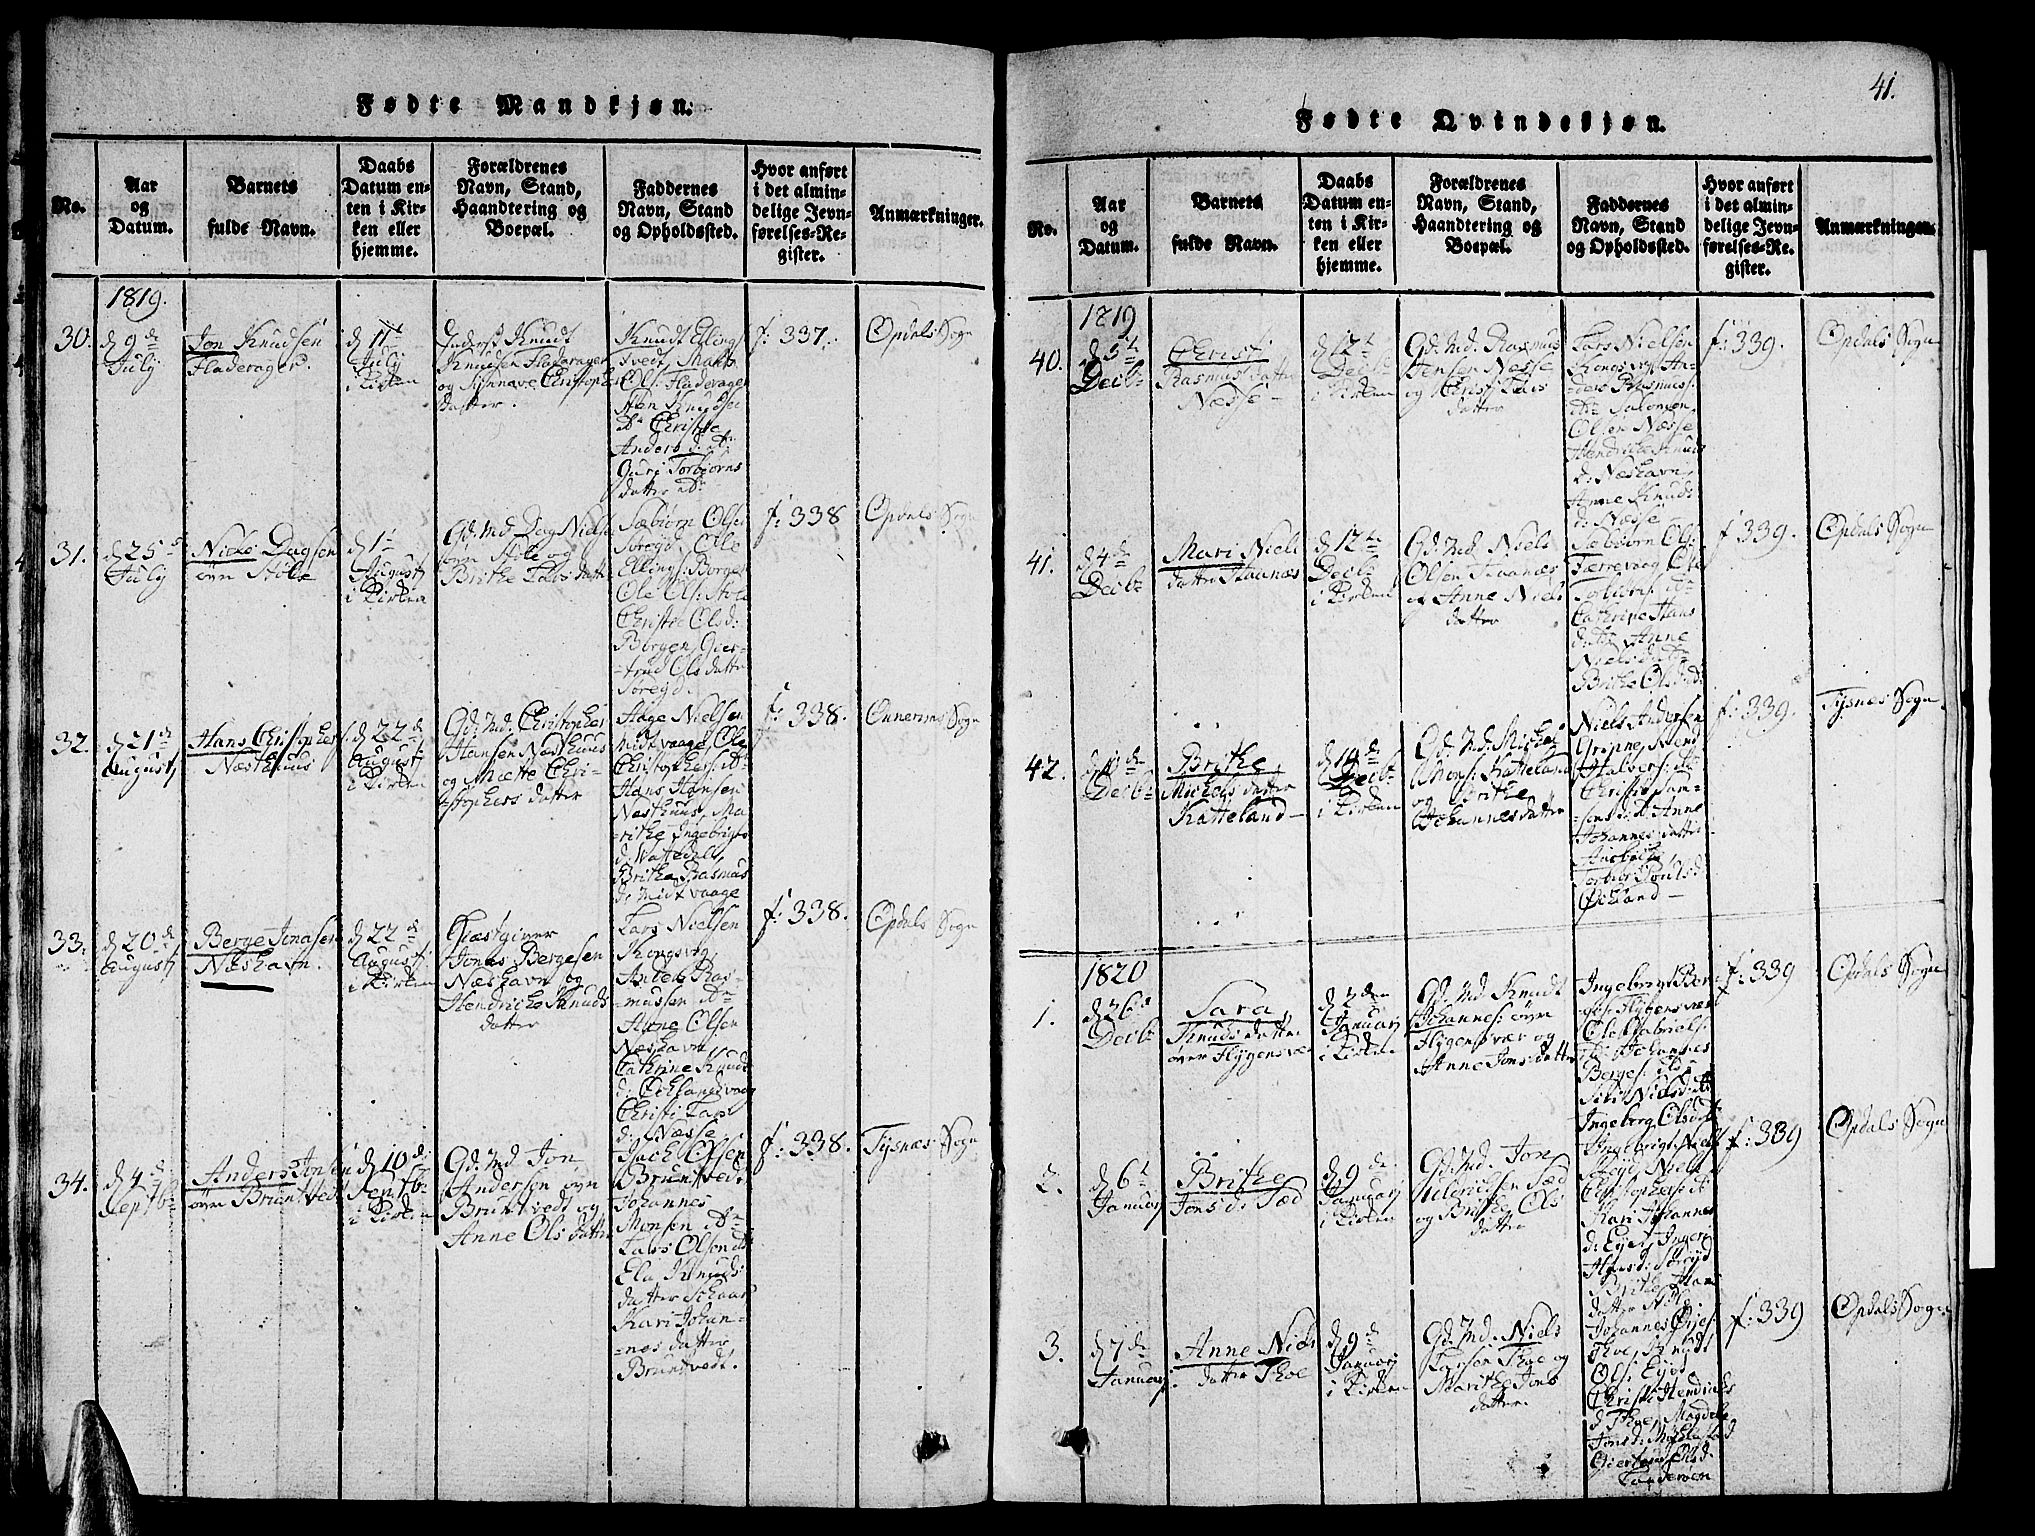 Fødte Mandkjøn.
No.
Aar
og
Datum.
Barnets
fulde Navn.
Daabs
Datum en-
ten i Kir-
ken eller
hjemme.
Forældrenes
Navn, Stand,
Haandtering og
Boepæl.
Faddernes
Navn, Stand
og Opholdssted.
Hvor anført
i det almin-
delige Jevn-
førelses-Re-
gister.
Anmærkninger.
1819.
30.
d 9de
July
Jon Knudsen
Fladerager.
d 11te
July
i Kirken
Inderst Knudt
Knudsen Fladerager
og Synnave Christophers
datter.
Knudt Ellings
Tvedt, Mats
Ols: Fladerager
Sten Knudsen
Christie
Anders d:
Guri Torbiørns
datter
f: 337.
Opdals Sogn
31.
d 25
July
Niels Dagsen
øvre Støle
d 1
August
i Kirken
Gd. Md Dag Niels
øvre Støle og
Brithe Lars datter
Sæbiørn Olsen
Søreyd, Olle
Ellings: Borgen
Ole Ols: Støle
Christie Olsd:
Borgen, Gjer-
-trud Ols datter
Søreyd.
f: 338
Opdals Sogn
32.
d 21de
August
Hans Christophers:
Næsthuus
d 22de
August
i Kirken
Gd. Md. Christopher
Hansen Næsthuus
og Mætte Chri-
stophers datter
Aage Nielsen
Midtvaage, Ole
Christophers:
Hans Hansen
Næsthuus, Ma-
-rithe Ingebrigts
d. Wattedal,
Brithe Rasmus
d: Midtvaage
f: 338.
Onnerims Sogn
33.
d 20de
August
Berge Jonasen
Næshavn.
d 22de
August
i Kirken
Giæstgiver
Jonas Bergesen
Næshavn og
Hendriche Knuds
datter
Lars Nielsen
Kongsvig,
Anders Ras-
-mussen
Anne Olsen
Næshavn
Cathrine Knuds
d: Ochlandsvaag
Christi Lars
d: Næsse
f: 338.
Opdals Sogn
34.
d 4de
Septbr
Anders Jonsen
øvre Bruntvedt
d 10de
Septbr
i Kirken
Gd. Md Jon
Andersen øvre
Bruntvedt og
Anne Ols datter
Jach Olsen
Bruntvedt
Johannes
Monsen
Lars Olson
Ela Knuds
datter Schaar
Kari Johan-
-nes datter
Bruntvedt.
f: 338.
Tysnæs Sogn
41.
Fødte Qvindekjøn.
No.
Aar
og
Datum.
Barnets
fulde Navn.
Daabs
Datum en-
ten i Kir-
ken eller
hjemme.
Forældrenes
Navn, Stand,
Haandtering og
Boepæl.
Faddernes
Navn, Stand
og Opholdssted.
Hvor anført
i det almin-
delige Jevn-
førelses-Re-
gister.
Anmærkninger.
1819
40.
d 5te
Decbr
Christi
Rasmus datter
Næsse
d 12te
Decbr
i Kirken
Gd. Md. Rasmus
Jensen Næsse
og Christi Lars
datter
Lars Nielsen
Kongsvig, An-
ders Rasmus:
Salomon
Olsen Næsse
Hendriche Knuds
d: Næshavn,
Anne Knuds
d: Næsse
f: 339.
Opdals Sogn
41.
d 4de
Decbr
Mari Niels
datter Staanæs
d 12te
Decbr
i Kirken
Gd. Md. Niels
Olsen Staanæs
og Anne Niels
datter
Sæbiørn Ols:
Færrevaag Ole
Cathrine Hans
datter Anne
Niels datter
Brithe Ols d:
f: 339.
Opdals Sogn
42.
Decbr
Brithe
Michels datter
Katteland
Decbr
i Kirken
Gd. Md. Michel
Mons: Katteland
og Brithe
Johannes datter
Niels Andersen
Gripne, Svend
Halvors:
Christi Sam-
-sons d: Anne
Johannes datter
Øchland
f: 339.
Tysnes Sogn
1820
1.
d 26de
Decbr
Sara
Knuds datter
øvre Flygensvær
d 2den
Januarj
i Kirken
Gd. Md Knudt
Johannes: øvre
Flygensvær og
Anne Jons datter
Ingebrigt Bør-
ges: Flygensvær
Ole Gabriels:
Johannes
Berges:
Siri Niels d:
Ingeberg Olsd:
f: 339
Opdals Sogn
2.
d 6te
Januarj
Brithe
Jons d: Sæd
d 9de
Januarj
i Kirken
Gd. Md. Jon
Sæd
og Brithe Ols
datter
Ingebrigt Niels:
Niels
Christophers:
Kari Johannes
d: Eyer, Ingeri
Søreyd
Brithe Hans
datter
f: 339
Opdals Sogn
3.
d 7de
Januarj
Anne Niels
datter Thoe
d 9de
Januarj
i Kirken
Gd. Md. Niels
Larsen Thoe og
Marithe Jons
datter
Johannes
Thoe, Knudt
Ols: Eyed
Christi Hendrichs
d Thoe, Magdele
Jons d:
Giertrud Ols d
f: 339
Opdals Sogn